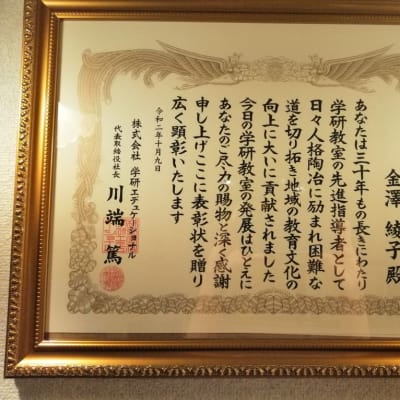 金澤 綾子 殿
あなたは三十年もの長きにわたり
学研教室の先進指導者として
日々人格陶冶に励まれ困難な
道を切り拓き地域の教育文化の
向上に大いに貢献されました
今日の学研教室の発展はひとえに
あなたのご尽力の賜物と深く感謝
申し上げここに表彰状を贈り
広く顕彰いたします
令和二年十月九日
株式会社 学研エデュケーショナル
代表取締役社長 川端 篤